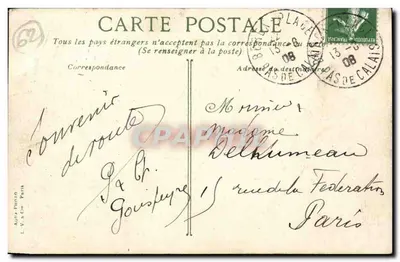 62
CARTE POSTALE
Tous les pays étrangers n'acceptent pas la correspondance au
(Se renseigner à la poste)
Correspondance
Adresse du destinataire
PLAGE
13
08
PAS DE CALAIS
13
08
PAS DE CALAIS
Souvenir
de route
P & Ch
Monsieur
Madame
Delhumeau
15 rue de la Federation
Paris
CPArama